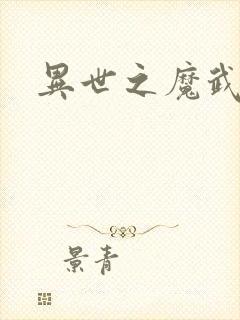 異世之魔武
景青